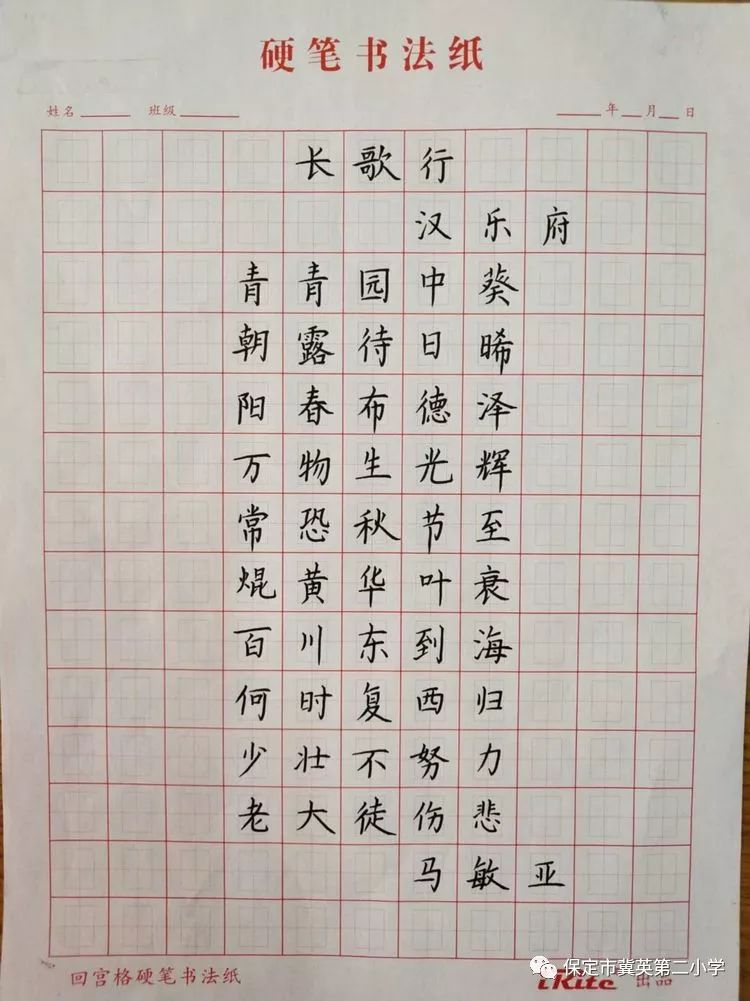 硬笔书法纸
姓名 班级 年 月 日
长歌行
汉乐府
青青园中葵
朝露待日晞
阳春布德泽
万物生光辉
常恐秋节至
焜黄华叶衰
百川东到海
何时复西归
少壮不努力
老大徒伤悲
马敏亚
回宫格硬笔书法纸
iKite 出品
保定市冀英第二小学